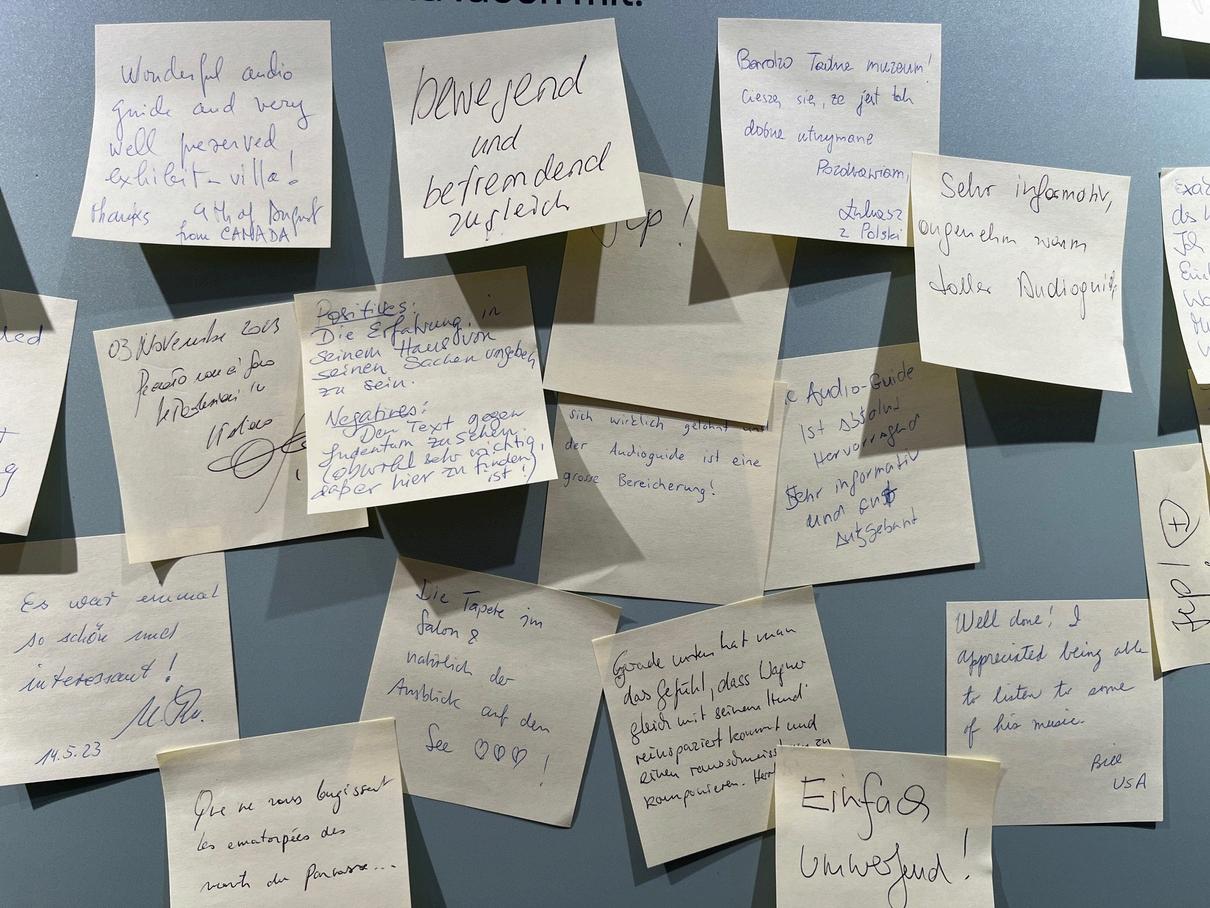 mit!
Wonderful audio
guide and very
well preserved
exhibit - villa!
thanks 9th of August
from CANADA
bewegend
und
befremdend
zugleich
Bardzo ładne muzeum!
Cieszę się, że jest tak
dobrze utrzymane
Pozdrawiam,
Łukasz
z Polski
Sehr informativ,
angenehm warm
toller Audioguide
03 Novembre
Positives:
Die Erfahrung, in
seinem Haus von
seinen Sachen umgeben
zu sein.
Negatives:
Der Text gegen
Judentum zu sehen.
(obwohl sehr wichtig,
daß er hier zu finden
ist!)
sich wirklich gelohnt und
der Audioguide ist eine
grosse Bereicherung!
Audio-Guide
ist absolut
Hervorragend
Sehr informativ
und gut
Aufgebaut
Es war einmal
so schön und
interessant!
14.5.23
Die Tapete im
Salon &
natürlich der
Ausblick auf den
See ♡♡♡ !
Gerade unten hat man
das Gefühl, dass Wagner
gleich mit seinem Hund
reinspaziert kommt und
einen zu
komponieren.
Well done! I
appreciated being able
to listen to some
of his music.
Bill
USA
Que ne vous
les des
du Parnasse...
Einfach
Umwerfend!